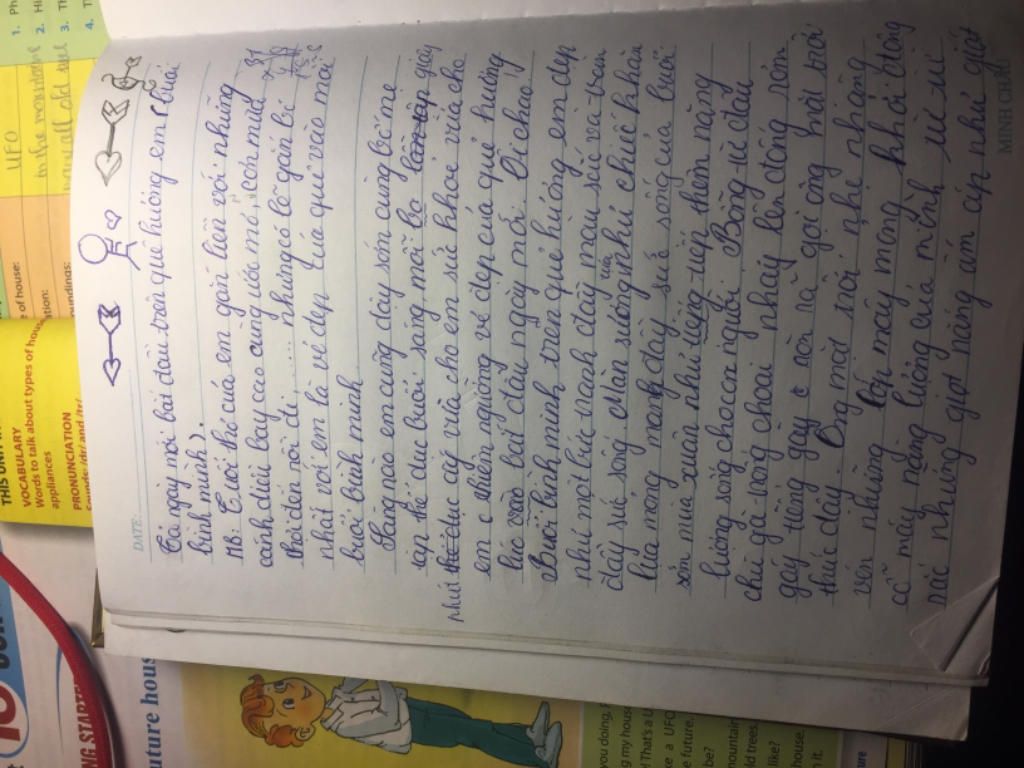 DATE:
Tả ngày mới bắt đầu trên quê hương em (buổi
bình minh).
MB. Tuổi thơ của em gắn liền với những
cánh diều bay cao cùng ước mơ, còn mùa
thời đến nơi đi..... nhưng có lẽ gắn bó
nhất với em là vẻ đẹp của quê vào mỗi
buổi bình minh
Hàng nào em cũng dậy sớm cùng bố mẹ
tập thể dục buổi sáng mỗi
thể dục ấy vừa cho em sức khỏe vừa cho
em chiêm ngưỡng vẻ đẹp của quê hương
lúc bắt đầu ngày mới. Ôi chao!
Buổi bình minh trên quê hương em đẹp
như một bức tranh đầy màu sắc và tràn
đầy sức sống. Màn sương như chiếc khăn
lụa mỏng manh đầy sức sống của buổi
sớm mùa xuân như tiếp thêm năng
lượng sống cho con người. Bỗng từ đâu
chú gà trống choai nhảy lên đống rơm
gáy tiếng gáy ò ó o gọi ông mặt trời
thức dậy. Ông mặt trời nhẹ nhàng
vén những mây mỏng khỏi
cỗ máy năng lượng của mình
những giọt nắng ấm áp như giọt
MINH CHÂU
THIS UNIT
VOCABULARY
Words to talk about types of house
appliances
PRONUNCIATION
UFO
in the mountains
1. Ph
2. Hi
3. Th
4. T
of house:
tion:
oundings:
NG STARTE
uture hous
you doing, P
my house
That's a U
ke a UFO
e future.
be?
mountain
ld trees.
like?
house.
it.
ture